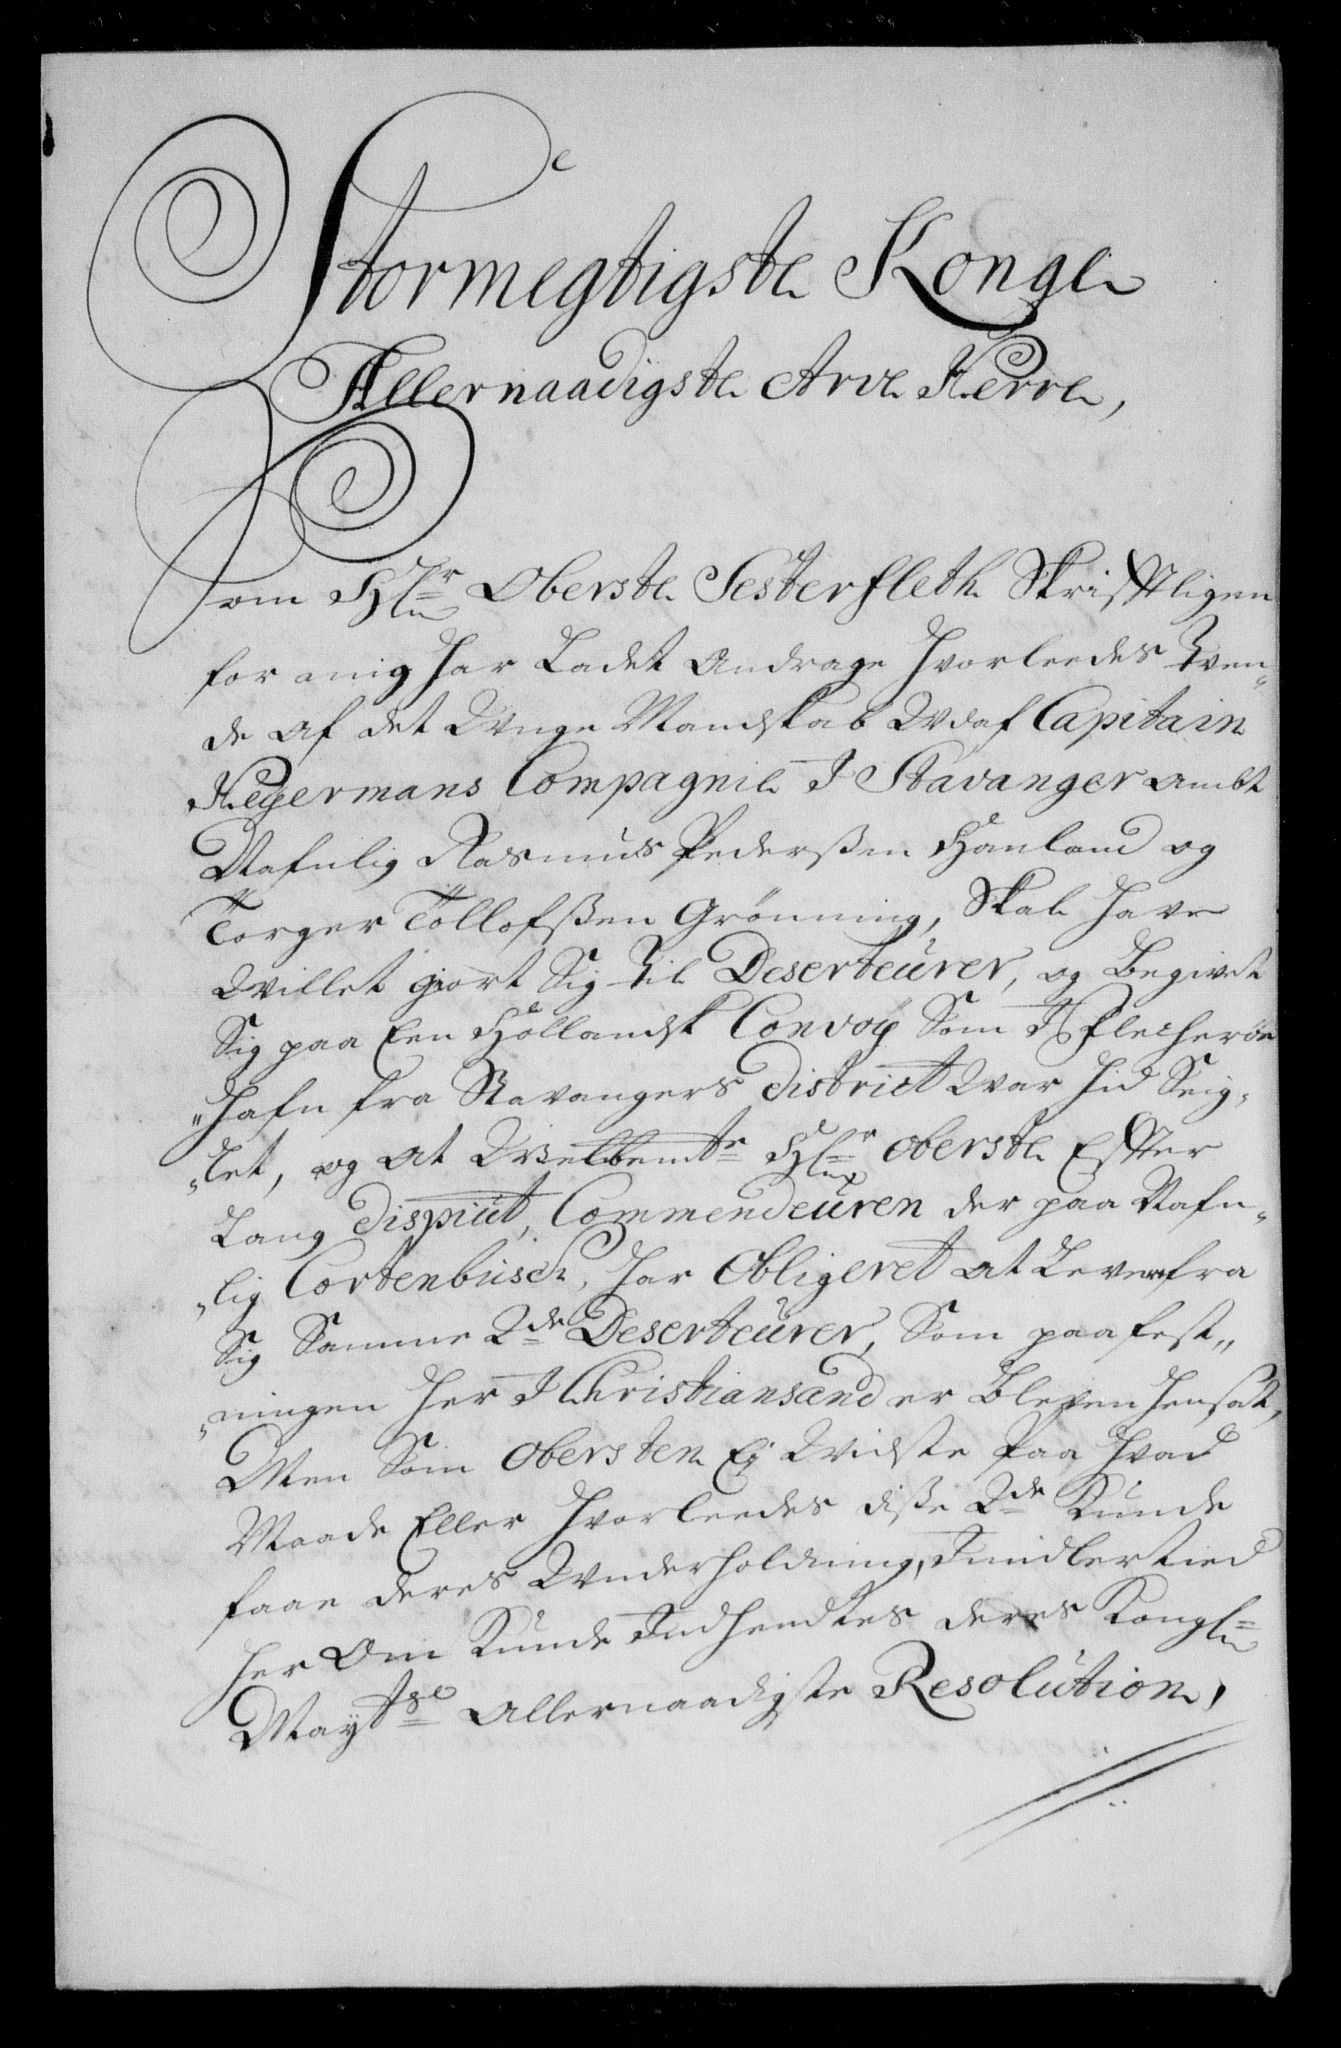 Stormegtigste Konge
Allernaadigste Arve Herre,
Som Hr Oberste Sesterfleth Skrifftligen
for mig har Ladet Andrage hvorleedes Tven-
de af det Unge Mandskab Udaf Capitain
Heyermans Compagnie I Stavanger ambt
Nafnlig Rasmus Pederßen Hanland og
Torger Tollofßen Grønning, Skal have
Willet giort Sig til Deserteurer, og Begivet
Sig paa Een Hollandsk Convoy Som I Flecherøe
"hafn fra Stavangers District War hid Seig-
"let, og at Welbemte Hr Oberste Effter
Lang Dispüt, Commendeuren der paa Nafn-
"lig Cortenbüsch, har Obligeret at Levere fra
Sig Samme 2de Deserteurer, Som paa fest-
"ningen her I Christiansand er Bleven hensat,
Men Som Obersten Ej Widste Paa hvad
Maade Eller hvorleedes diße 2de Kunde
faae deres Underholdning, Imidlertied
her Om Kunde Indhendtes deres Kongl
Maytz Allernaadigste Resolution,